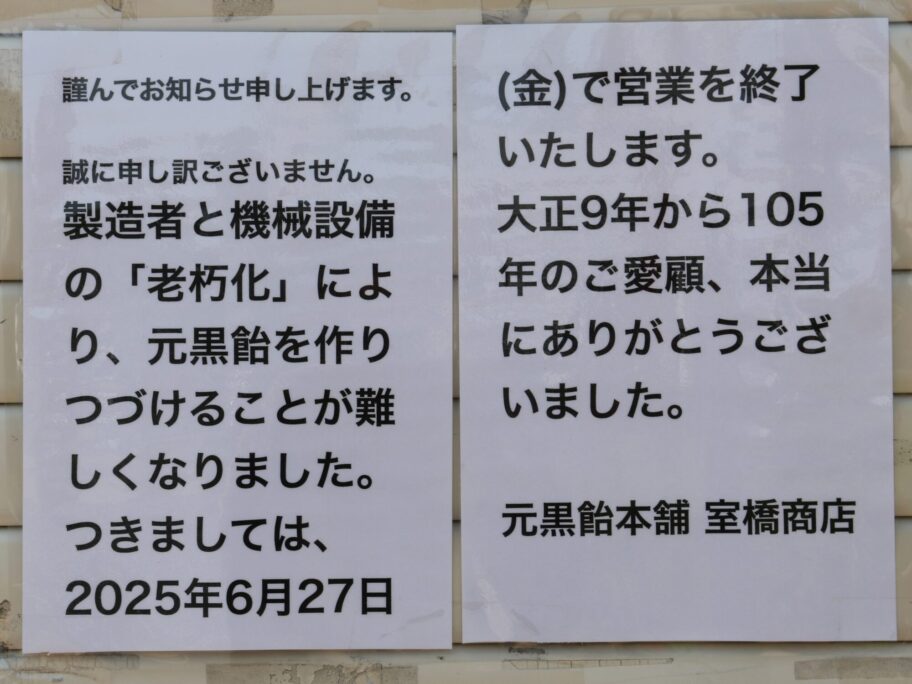 謹んでお知らせ申し上げます。
誠に申し訳ございません。
製造者と機械設備
の「老朽化」によ
り、元黒飴を作り
つづけることが難
しくなりました。
つきましては、
2025年6月27日
(金)で営業を終了
いたします。
大正9年から105
年のご愛顧、本当
にありがとうござ
いました。
元黒飴本舗 室橋商店